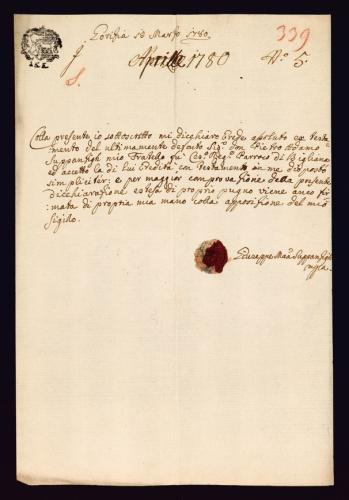 Gorizia 10 Marzo 1780
339
f.
Aprille 1780
No. 5.
S.
Colla presente io sottoscritto mi dicchiaro Erede assoluto ex testa-
mento del ultimamente defonto Sigr. Don Pietro Adamo
Suppanzigh mio Fratello qu. Ces. Rego. Parroco di Bigliana
ed accetto la di lui Eredità con testamento in me disposta
simpliciter: e per maggior comprovazione della presente
dicchiarazione estesa di proprio pugno viene anco fir-
mata di propria mia mano colla apposizione del mio
Sigilo.
Giuseppe Maa. Suppanzigh
mppa.